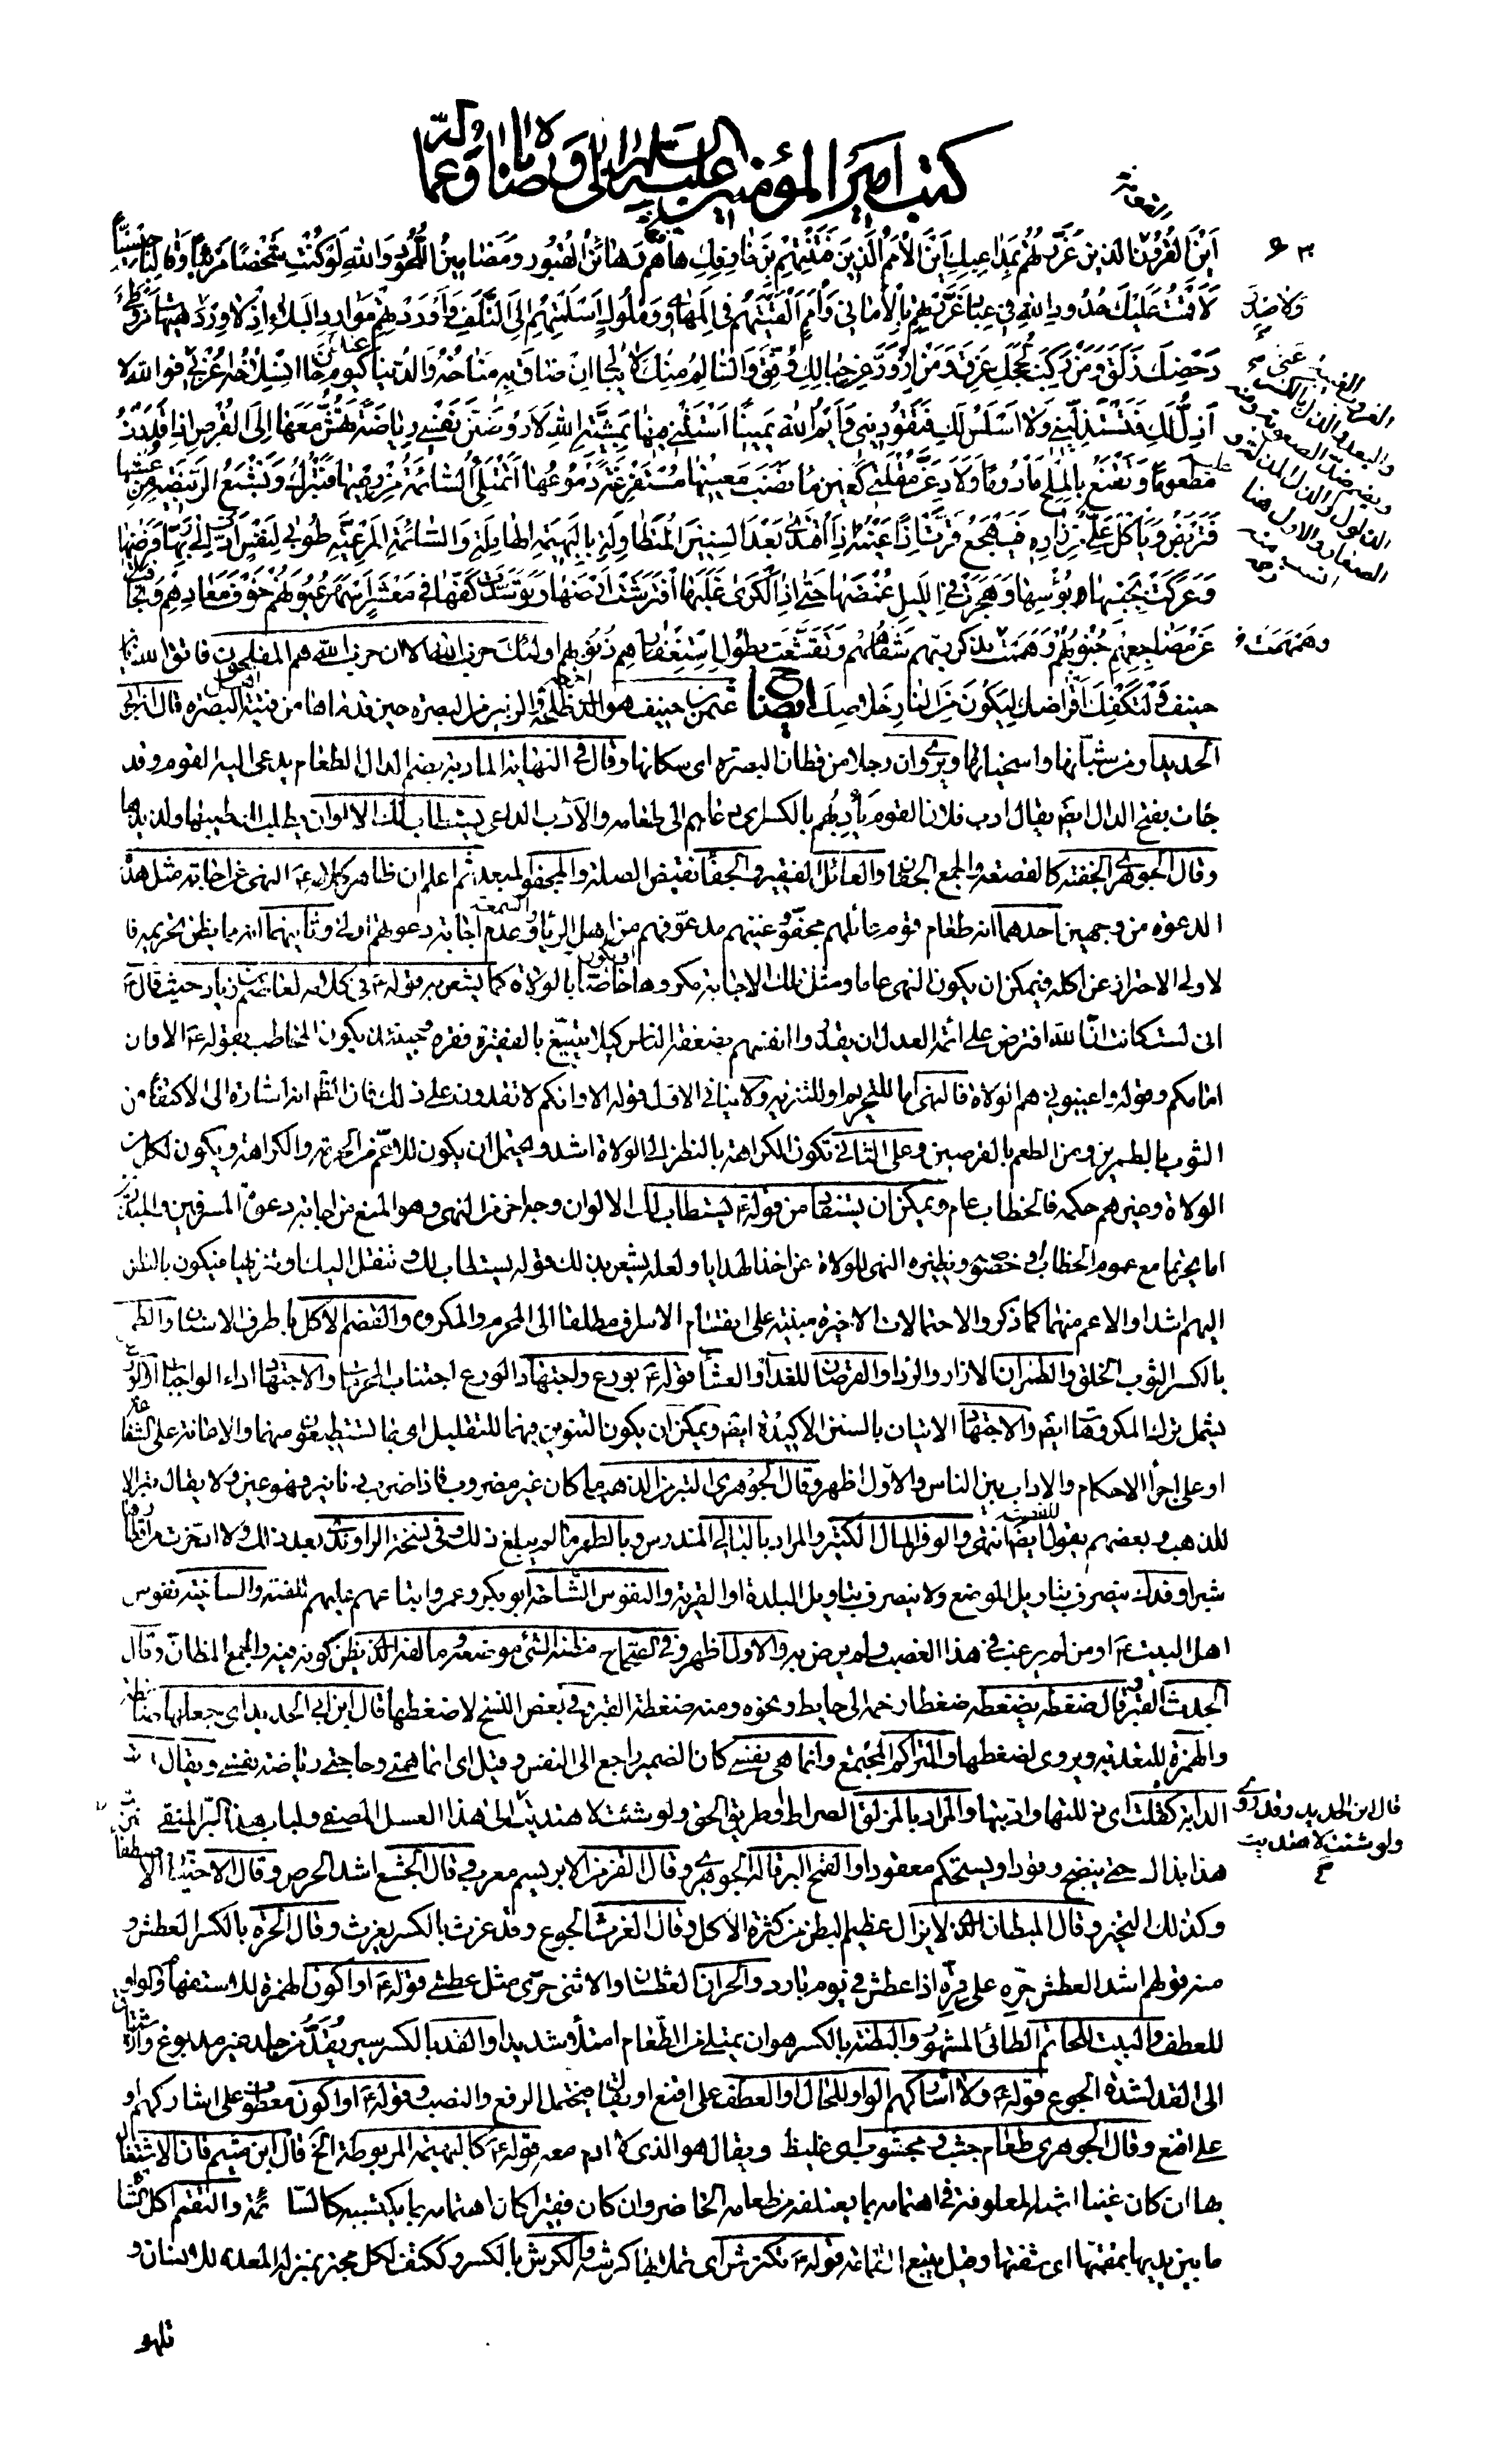 كتب امير المؤمنين عليه السلام الى وصاياه وعماله
اَيْنَ الْقُرُونُ الَّذِينَ غَرَرْتِهُمْ بِمَدَاعِبِكِ اَيْنَ الْاُمَمُ الَّذِينَ فَتَنْتِهِمْ بِزَخَارِفِكِ هَا هُمْ رَهَائِنُ الْقُبُورِ وَمَضَامِينُ اللُّحُودِ وَاللّٰهِ لَوْ كُنْتِ شَخْصًا مَرْئِيًّا وَقَالَبًا حِسِّيًّا
لَاَقَمْتُ عَلَيْكِ حُدُودَ اللّٰهِ فِي عِبَادٍ غَرَرْتِهِمْ بِالْاَمَانِي وَاُمَمٍ اَلْقَيْتِهُمْ فِي الْمَهَاوِي وَمُلُوكٍ اَسْلَمْتِهُمْ اِلَى التَّلَفِ وَاَوْرَدْتِهِمْ مَوَارِدَ الْبَلَاءِ اِذْ لَا وِرْدَ هَيْهَاتَ مَنْ وَطِئَ
دَحْضَكِ زَلَقَ وَمَنْ رَكِبَ لُجَجَكِ غَرِقَ وَمَنِ ازْوَرَّ عَنْ حِبَالِكِ وُفِّقَ وَالسَّالِمُ مِنْكِ لَا يُبَالِي اِنْ ضَاقَ بِهِ مَنَاخُهُ وَالدُّنْيَا عِنْدَهُ كَيَوْمٍ حَانَ انْسِلَاخُهُ اعْزُبِي عَنِّي فَوَاللّٰهِ لَا
اَذِلُّ لَكِ فَتَسْتَذِلِّينِي وَلَا اَسْلَسُ لَكِ فَتَقُودِينِي وَاَيْمُ اللّٰهِ يَمِينًا اَسْتَثْنِي فِيهَا بِمَشِيَّةِ اللّٰهِ لَاَرُوضَنَّ نَفْسِي رِيَاضَةً تَهُشُّ مَعَهَا اِلَى الْقُرْصِ اِذَا قَدَرْتُ عَلَيْهِ
مَطْعُومًا وَتَقْنَعُ بِالْمِلْحِ مَأْدُومًا وَلَاَدَعَنَّ مُقْلَتِي كَعَيْنِ مَاءٍ نَضَبَ مَعِينُهَا مُسْتَفْرِغَةً دُمُوعَهَا اَتَمْتَلِئُ السَّائِمَةُ مِنْ رِعْيِهَا فَتَبْرُكَ وَتَشْبَعُ الرَّبِيضَةُ مِنْ عُشْبِهَا
فَتَرْبِضَ وَيَأْكُلُ عَلِيٌّ مِنْ زَادِهِ فَيَهْجَعَ قَرَّتْ اِذًا عَيْنُهُ اِذَا اقْتَدَى بَعْدَ السِّنِينَ الْمُتَطَاوِلَةِ بِالْبَهِيمَةِ الْهَامِلَةِ وَالسَّائِمَةِ الْمَرْعِيَّةِ طُوبَى لِنَفْسٍ اَدَّتْ اِلَى رَبِّهَا فَرْضَهَا
وَعَرَكَتْ بِجَنْبِهَا بُؤْسَهَا وَهَجَرَتْ فِي اللَّيْلِ غُمْضَهَا حَتَّى اِذَا الْكَرَى غَلَبَهَا افْتَرَشَتْ اَرْضَهَا وَتَوَسَّدَتْ كَفَّهَا فِي مَعْشَرٍ اَسْهَرَ عُيُونَهُمْ خَوْفُ مَعَادِهِمْ وَتَجَافَتْ
عَنْ مَضَاجِعِهِمْ جُنُوبُهُمْ وَهَمْهَمَتْ بِذِكْرِ رَبِّهِمْ شِفَاهُهُمْ وَتَقَشَّعَتْ بِطُولِ اسْتِغْفَارِهِمْ ذُنُوبُهُمْ اولئك حزب الله الا ان حزب الله هم المفلحون فاتق الله يا ابن
حنيف وَلْتَكْفِكَ اَقْرَاصُكَ لِيَكُونَ مِنَ النَّارِ خَلَاصُكَ ايضاح عثمن بن حنيف هو الذي اخرجه طلحة والزبير من البصره حين قدماها من فتية البصره قال ابن ابي
الحديد اي من شبانها واسخيائها ويروى ان رجلا من قطان البصره اي سكانها وقال في النهاية المادبة بضم الدال الطعام يدعى اليه القوم وقد
جاءت بفتح الدال ايضا يقال ادب فلان القوم يَأْدِبُهم بالكسر اى دعاهم الى طعامه والآدب الداعى يستطاب لك الالوان يطلب لك طيبها ولذيذها
وقال الجوهري الجفنة كالقصعة والجمع الجفان والعائل الفقير والجفاء نقيض الصلة والمجفو المبعد ثم اعلم ان ظاهر كلامه ع النهى عن اجابة مثل هذه
الدعوة من وجهين احدهما انه طعام قوم عائلهم مجفو وغنيهم مدعو فهم من اهل الرئاء والسمعة وعدم اجابة دعوتهم اولى وثانيهما انه مما يظن تحريمه فا
لاولى الاحتراز عن اكله فيمكن ان يكون النهى عاما ومثل تلك الاجابة مكروها او يكون خاصا بالولاة كما يشعر به قوله ع في كلامه لعاصم بن زياد حيث قال ع
انى لست كانت ان الله افترض على ائمة العدل ان يقدروا انفسهم بضعفة الناس كيلا يتبيغ بالفقير فقره وحينئذ يكون المخاطب بقوله ع الا وان
امامكم وقوله واعينوني هم الولاة فالنهى اما للتحريم او للتنزيه ولا ينافي الاول قوله الا وانكم لا تقدرون على ذلك فان الظ انه اشارة الى الاكتفاء من
الثوب بالطمرين ومن الطعم بالقرصين وعلى الثاني تكون الكراهة بالنظر الى الولاة اشد ويحتمل ان يكون للاعم من الحرمة والكراهة ويكون لكل من
الولاة وغيرهم حكمه فالخطاب عام ويمكن ان يستفاد من قوله ع يستطاب لك الالوان وجه اخر من النهى وهو المنع من اجابة دعوة المسرفين والمبذرين
اما تحريما مع عموم الخطاب او خصوصه ونظيره النهى للولاة عن اخذ الهدايا ولعله يشعر بذلك قوله يستطاب لك وتنقل اليك او تنزيها فيكون بالنظر
اليهم اشد او الاعم منهما كما ذكر والاحتمالات الاخيرة مبنية على انقسام الاسراف مطلقا الى المحرم والمكروه والقضم الاكل باطراف الاسنان والطمر
بالكسر الثوب الخلق والطمران الازار والرداء والقرصان للغداء والعشاء قوله ع بورع واجتهاد الورع اجتناب المحرمات والاجتهاد اداء الواجبات او الورع
يشمل ترك المكروهات ايضا والاجتهاد الاتيان بالسنن الاكيدة ايضا ويمكن ان يكون التنوين فيهما للتقليل اى بما تستطيعون منهما والاعانة على الشفاعة
او على اجراء الاحكام والاداب بين الناس والاول اظهر وقال الجوهرى التبر من الذهب ما كان غير مضروب فاذا ضرب دنانير فهو عين ولا يقال تبر الا
للذهب وبعضهم يقول للفضة ايضا انتهى والوفر المال الكثير والمراد بالبالى المندرس وبالطمر ما لم يبلغ ذلك وفي نسخة الراوندى بعد ذلك ولا ادخرت من اقطارها
شبرا وفدك ينصرف بتاويل الموضع ولا ينصرف بتاويل البلدة او القرية والنفوس الشاحة ابوبكر وعمر واتباعهم عليهم اللعنة والساخية نفوس
اهل البيت ع او من لم يرغب في هذا الغصب ولم يرض به والاول اظهر وفي الصحاح مظنة الشئ موضعه ومالفه الذي يظن كونه فيه والجمع المظان وقال
الجدث القبر وقال ضغطه يضغطه ضغطا زحمه الى حايط ونحوه ومنه ضغطة القبر وفي بعض النسخ لاضغطها قال ابن ابى الحديد اى جعلها ضاغطة
والهمزة للتعدية ويروى لضغطها والمتراكم المجتمع وانما هى نفسى كان الضمير راجع الى النفس وقيل اى انما همتى وحاجتى رياضة نفسى ويقال رضت
الدابة كقلت اى ذللتها وادبتها والمراد بالمزلق الصراط او طريق الحق ولو شئت لاهتديت الى هذا العسل المصفى ولباب هذا البر المنقى
هذا بذاك حتى ينضج وقودا ويستحكم معقودا والقمح البر قاله الجوهرى وقال القز من الابريسم معرب وقال الجشع اشد الحرص وقال الاختيار الاصطفاء
وكذلك التخير وقال المبطان الذي لا يزال عظيم البطن من كثرة الاكل وقال الغرث الجوع وقد غرث بالكسر يغرث وقال الحرة بالكسر العطش و
منه قولهم اشد العطش حِرّة على قِرّة اذا عطش في يوم بارد والحران العطشان والانثى حرّى مثل عطشى قوله ع او اكون الهمزة للاستفهام والواو
للعطف والبيت للحاتم الطائى المشهور والبطنة بالكسر هو ان يمتلى من الطعام امتلاء شديدا والقد بالكسر سير يُقَدُّ من جلد غير مدبوغ والاشتياق
الى القد لشدة الجوع قوله ع ولا اشاركهم الواو للحال او العطف على اقنع او يقال فيحتمل الرفع والنصب وقوله ع او اكون معطوف على اشاركهم او
على اقنع وقال الجوهرى طعام جشب ومجشوب اى غليظ ويقال هو الذى لا ادم معه قوله ع كالبهيمة المربوطة الخ قال ابن ميثم فان الاشتغال
بها ان كان غنيا اشبه المعلوفة في اهتمامه بما يعتلفه من طعامه الحاضر وان كان فقيرا كان اهتمامه بما يكتسبه كالسائمة والتقمم اكل الشاة
ما بين يديها بمقمتها اى شفتها وقيل تتبع القمامة قوله ع تكترش اى تملا بها كرشه والكرش بالكسر وككتف لكل مجتر بمنزلة المعدة للانسان و
تلهو
ولاضد
وهمهمت
قال ابن الحديد وقد روى
ولو شئت لاهتديت